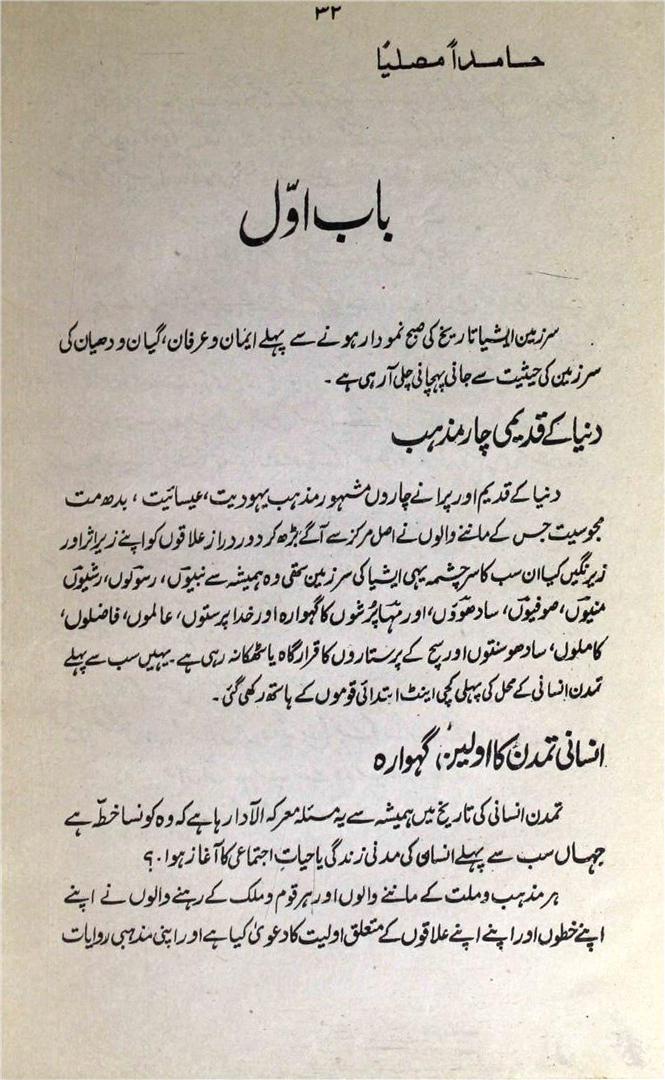 ۳۲
حامداً مصلیاً
باب اوّل
سرزمین ایشیا تاریخ کی صبح نمودار ہونے سے پہلے ایمان و عرفان، گیان و دھیان کی
سرزمین کی حیثیت سے جانی پہچانی چلی آ رہی ہے ۔
دنیا کے قدیمی چار مذہب
دنیا کے قدیم اور پرانے چاروں مشہور مذہب یہودیت، عیسائیت ، بدھ مت
مجوسیت جس کے ماننے والوں نے اصل مرکز سے آگے بڑھ کر دور دراز علاقوں کو اپنے زیر اثر اور
زیر نگیں کیا ان سب کا سرچشمہ یہی ایشیا کی سرزمین تھی وہ ہمیشہ سے نبیوں، رسولوں، رشیوں
منیوں، صوفیوں، سادھوؤں، اور مہاپُرشوں کا گہوارہ اور خدا پرستوں، عالموں، فاضلوں،
کاملوں، سادھو سنتوں اور سچ کے پرستاروں کا قرارگاہ یا ٹھکانہ رہی ہے ۔ یہیں سب سے پہلے
تمدن انسانی کے محل کی پہلی کچی اینٹ ابتدائی قوموں کے ہاتھ رکھی گئی ۔
انسانی تمدن کا اولین، گہوارہ
تمدن انسانی کی تاریخ میں ہمیشہ سے یہ مسئلہ معرکہ الآدار رہا ہے کہ وہ کونسا خطّہ ہے
جہاں سب سے پہلے انسان کی مدنی زندگی یا حیاتِ اجتماعی کا آغاز ہوا ۔ ؟
ہر مذہب و ملت کے ماننے والوں اور ہر قوم و ملک کے رہنے والوں نے اپنے
اپنے خطوں اور اپنے اپنے علاقوں کے متعلق اولیت کا دعویٰ کیا ہے اور اپنی مذہبی روایات